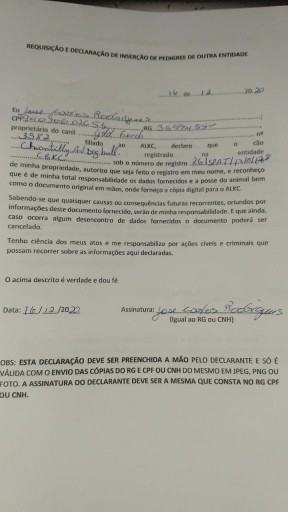 REQUISIÇÃO E DECLARAÇÃO DE INSERÇÃO DE PEDIGREE DE OUTRA ENTIDADE
16 de 12 2020
Eu Jose Carlos Rodrigues
CPF RG
proprietário do canil Gold Bend nº
3582 filiado ao ALKC, declaro que o cão
Chantilly registrado na entidade
CBKC sob o número de registro
de minha propriedade, autorizo que seja feito o registro em meu nome, e reconheço
que é de minha total responsabilidade os dados fornecidos e a posse do animal bem
como o documento original em mãos, onde forneço a cópia digital para o ALKC.
Sabendo-se que quaisquer causas ou consequências futuras recorrentes, oriundos por
informações deste documento fornecido, serão de minha responsabilidade. E que ainda,
caso ocorra algum desencontro de dados fornecidos o documento poderá ser
cancelado.
Tenho ciência dos meus atos e me responsabilizo por ações cíveis e criminais que
possam recorrer sobre as informações aqui declaradas.
O acima descrito é verdade e dou fé
Data: 16/12/2020 Assinatura: Jose Carlos Rodrigues
(Igual ao RG ou CNH)
OBS: ESTA DECLARAÇÃO DEVE SER PREENCHIDA A MÃO PELO DECLARANTE E SÓ É
VÁLIDA COM O ENVIO DAS CÓPIAS DO RG E CPF OU CNH DO MESMO EM JPEG, PNG OU
FOTO. A ASSINATURA DO DECLARANTE DEVE SER A MESMA QUE CONSTA NO RG CPF
OU CNH.